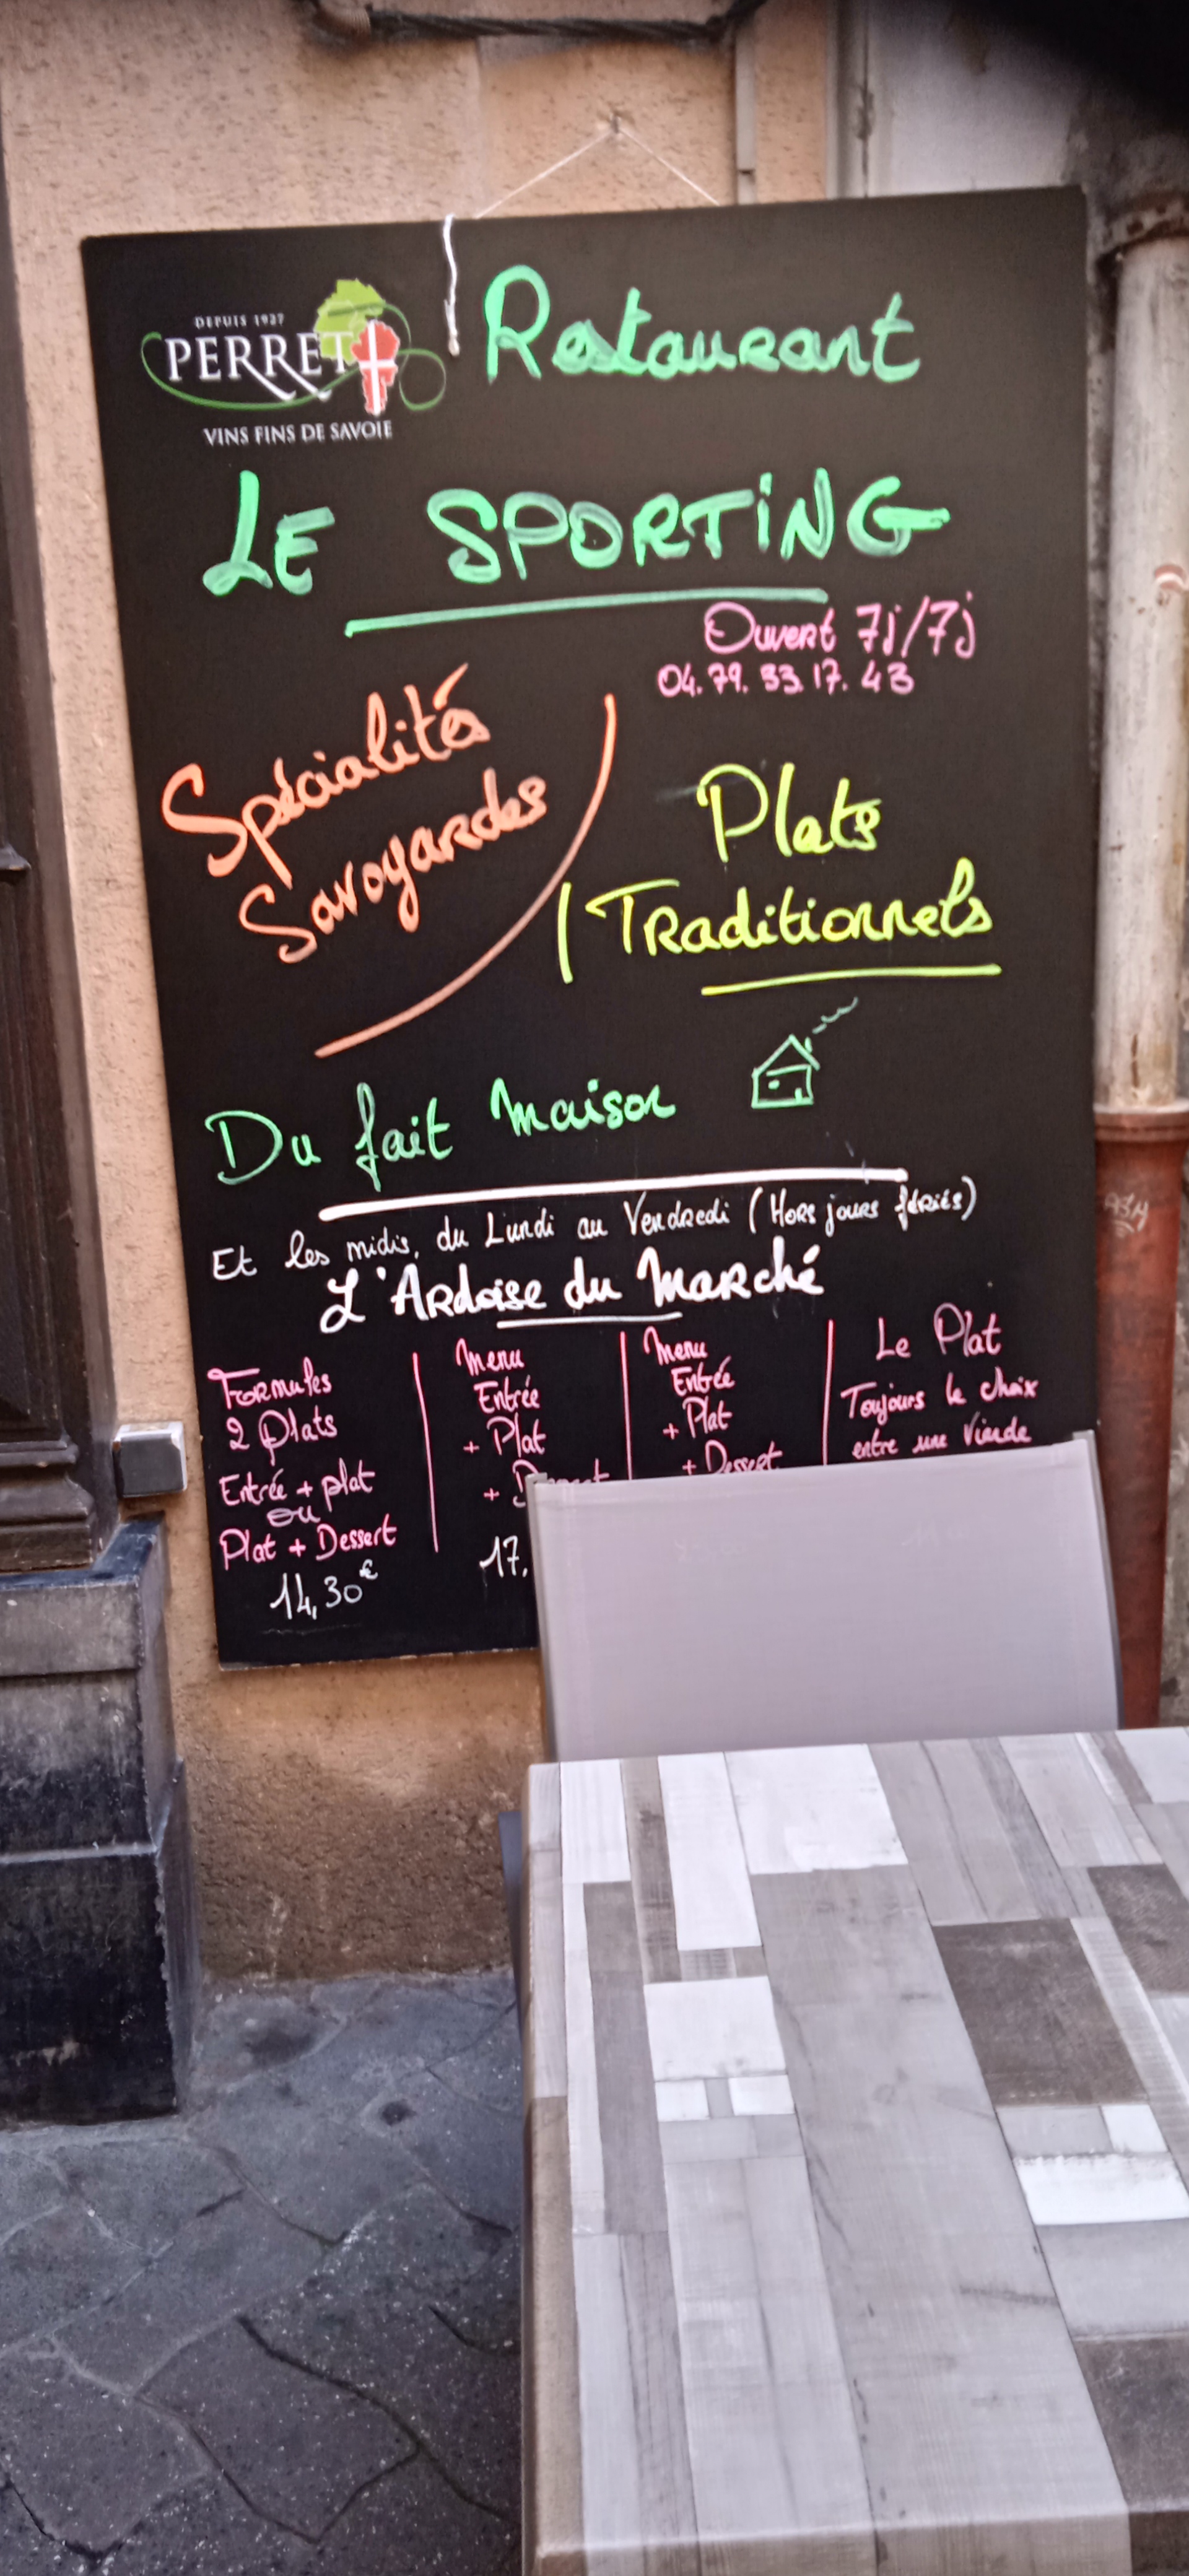 DEPUIS 1927
PERRET
VINS FINS DE SAVOIE
Restaurant
LE SPORTING
Ouvert 7j/7j
04.79.33.17.43
Spécialités
Savoyardes
Plats
Traditionnels
Du fait maison
Et les midis, du Lundi au Vendredi (Hors jours fériés)
L'Ardoise du Marché
Formules
2 Plats
Entrée + plat
ou
Plat + Dessert
14,30€
Menu
Entrée
+ Plat
+
17,
Menu
Entrée
+ Plat
+ Dessert
Le Plat
Toujours le choix
entre une Viande